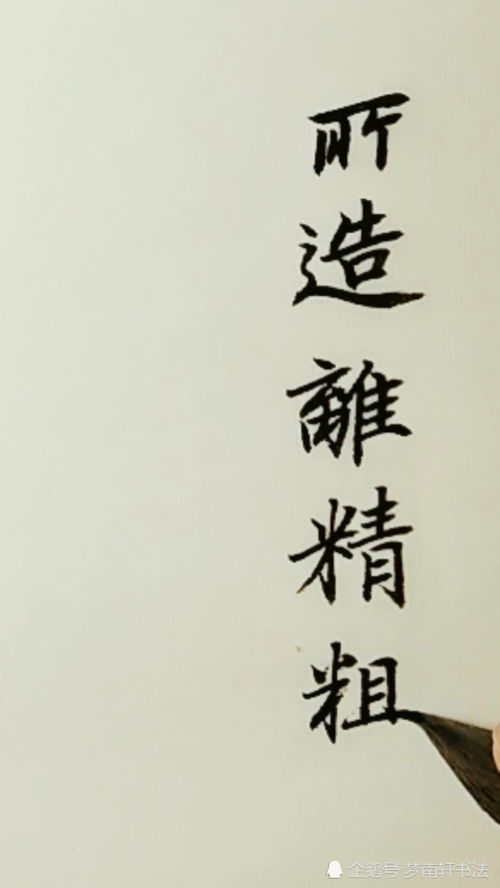 所造離精粗
企鹅号 梦南轩书法